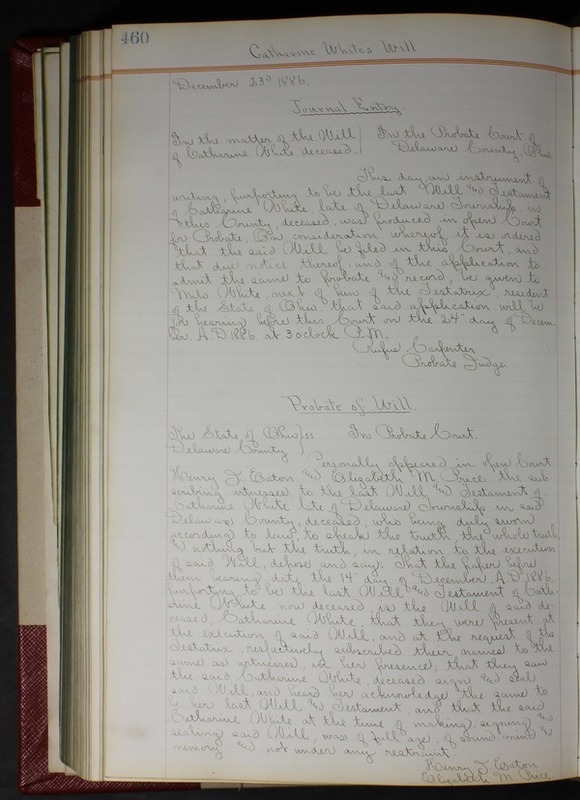 460
Catharine White's Will
December 23d 1886.
Journal Entry.
In the matter of the Will | In the Probate Court of
of Catharine White, deceased. | Delaware County, Ohio
This day, an instrument of
writing, purporting to be the last Will and Testament
of Catharine White, late of Delaware Township, in
this County, deceased, was produced in open Court
for Probate; On consideration whereof it is ordered
that the said Will be filed in this Court, and
that due notice thereof, and of the application to
admit the same to probate and record, be given to
Milo White, next of kin of the Testatrix, resident
of the State of Ohio; that said application will be
for hearing before this Court on the 24" day of Decem-
ber. A.D. 1886, at 3 oclock P.M.
Rufus Carpenter
Probate Judge.
Probate of Will.
The State of Ohio } ss In Probate Court.
Delaware County }
Personally appeared in open Court
Henry J. Eaton and Elizabeth M. Price the sub-
scribing witnesses to the last Will and Testament of
Catharine White late of Delaware Township in said
Delaware County, deceased, who being duly sworn
according to law, to speak the truth, the whole truth
and nothing but the truth, in relation to the execution
of said Will, depose and say: That the paper before
them bearing date the 14" day of December A.D. 1886,
purporting to be the last Will and Testament of Cath-
arine White now deceased is the Will of said de-
ceased, Catharine White, that they were present at
the execution of said Will, and at the request of the
Testatrix, respectively subscribed their names to the
same as witnesses, in her presence; that they saw
the said Catharine White, deceased sign and seal
said Will, and heard her acknowledge the same to
be her last Will and Testament, and that the said
Catharine White at the time of making, signing and
sealing said Will, was of full age, of sound mind and
memory and not under any restraint.
Henry J. Eaton
Elizabeth M. Price